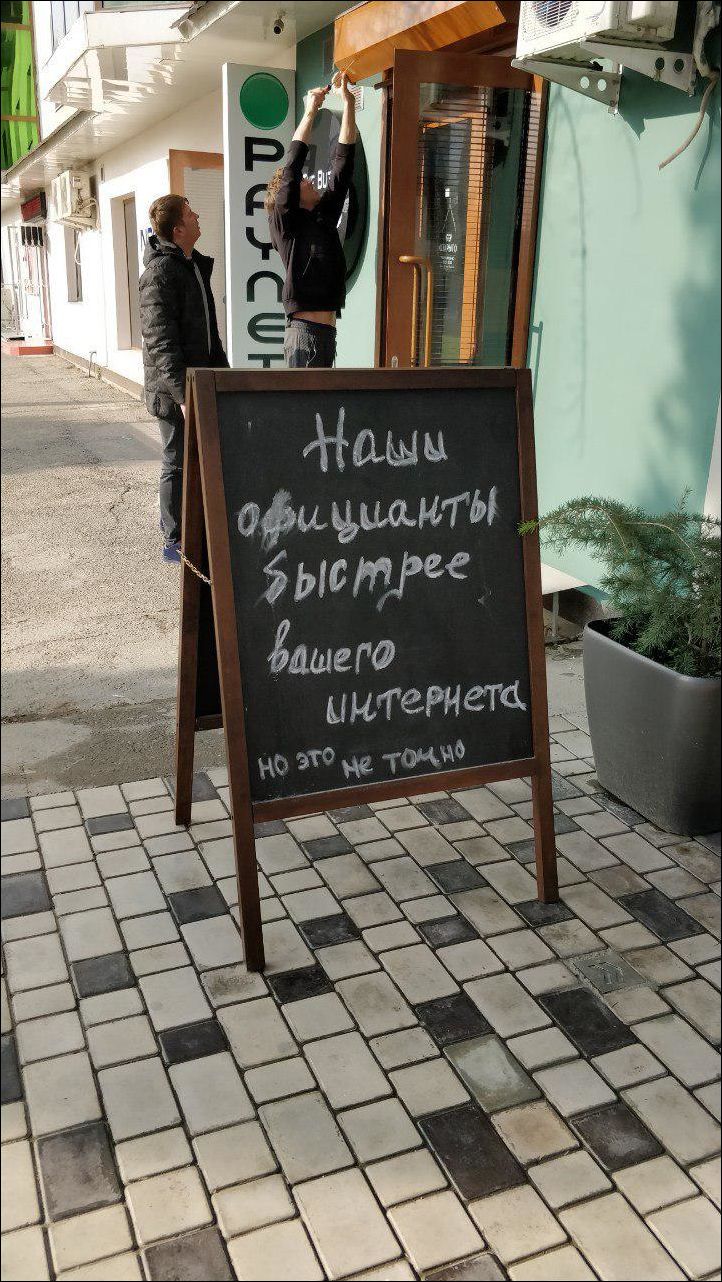 PAYNET
Наши
официанты
быстрее
вашего
интернета
но это не точно